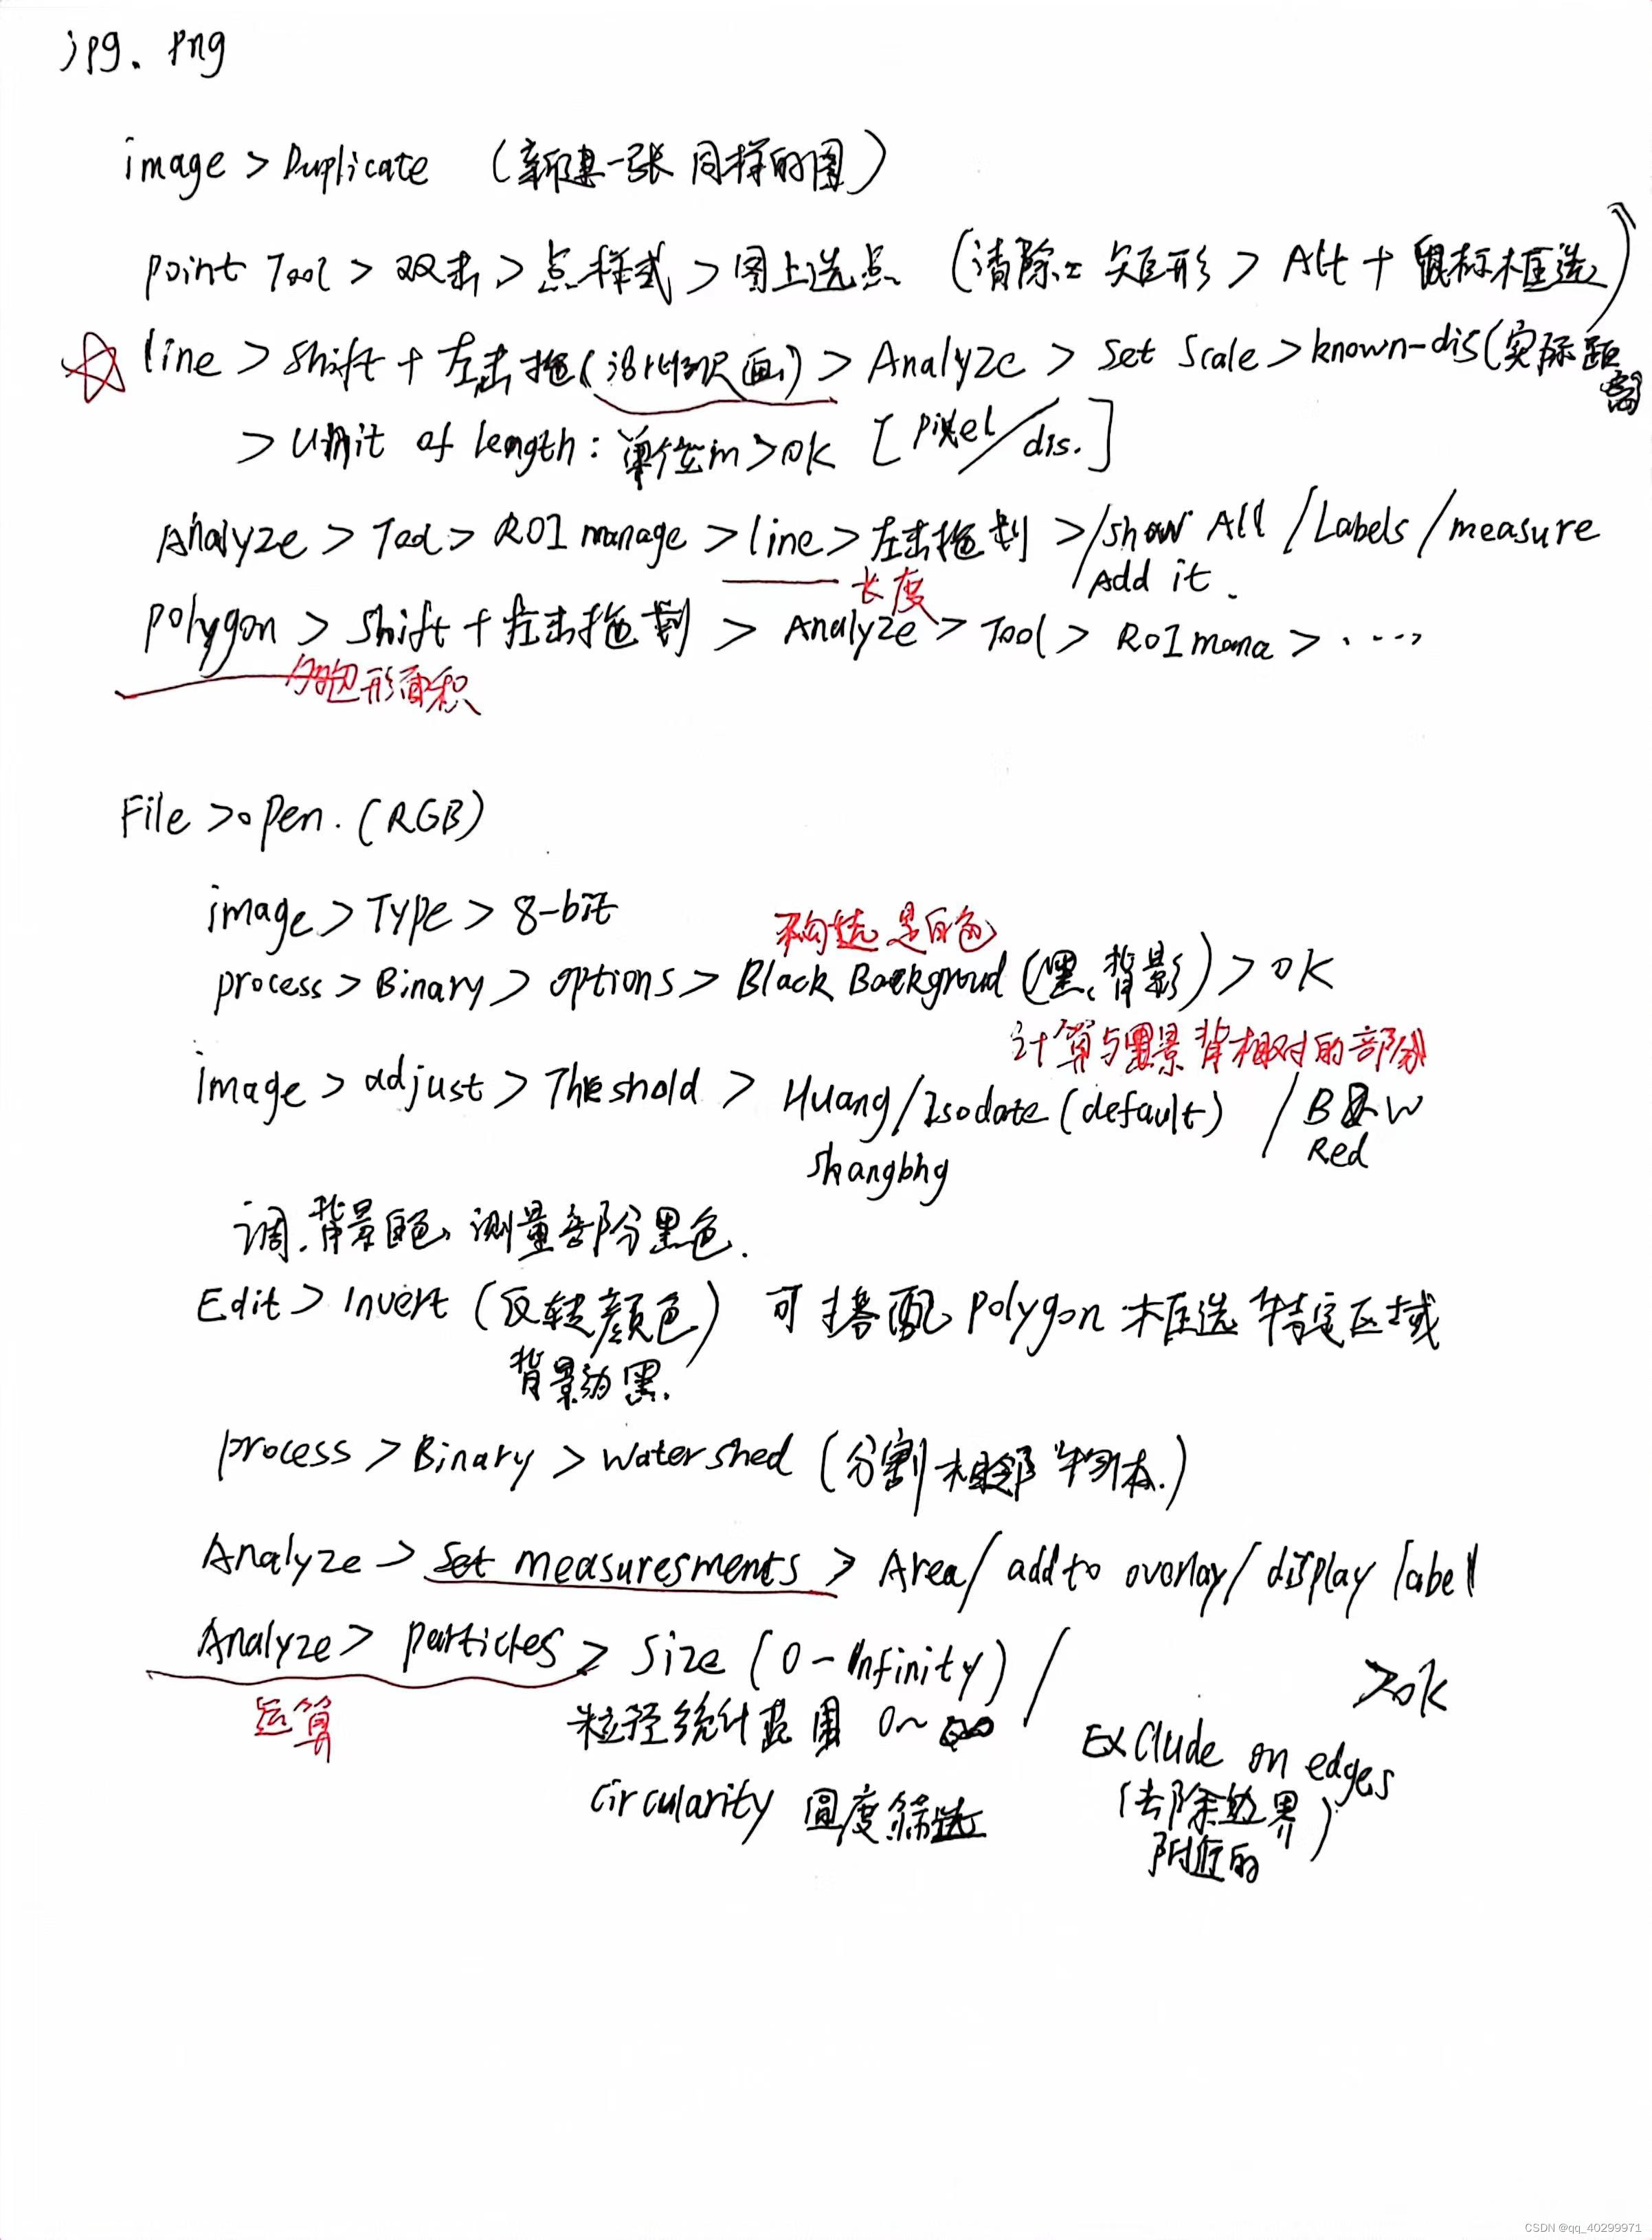 jpg. png
image > Duplicate (新建一张同样的图)
point Tool > 双击 > 点样式 > 图上选点 (清除: 矩形 > Alt + 鼠标框选)
☆ line > shift + 左击拖(沿比例尺画) > Analyze > Set Scale > known-dis(实际距离
> Unit of length: 单位m > ok [pixel/dis.]
Analyze > Tool > ROI manage > line > 左击拖划 > /show All /Labels /measure
长度
Add it.
polygon > shift + 左击拖划 > Analyze > Tool > ROI mana > ....
形面积
File > open. (RGB)
image > Type > 8-bit
不勾选是白色
process > Binary > options > Black Background (黑背影) > ok
计算与背景相对的部分
image > adjust > Threshold > Huang/Isodate (default) / B&W
shangbhg
Red
调. 背景白色, 测量部分黑色.
Edit > Invert (反转颜色) 可搭配 polygon 框选特定区域
背景为黑.
process > Binary > Watershed (分割相邻物体.)
Analyze > Set measuresments > Area/ add to overlay/ display label
Analyze > particles > Size (0-Infinity) / > ok
运算
粒径统计范围 0~∞
Exclude on edges
Circularity 圆度筛选
(去除边界)
附近的
CSDN @qq_40299971